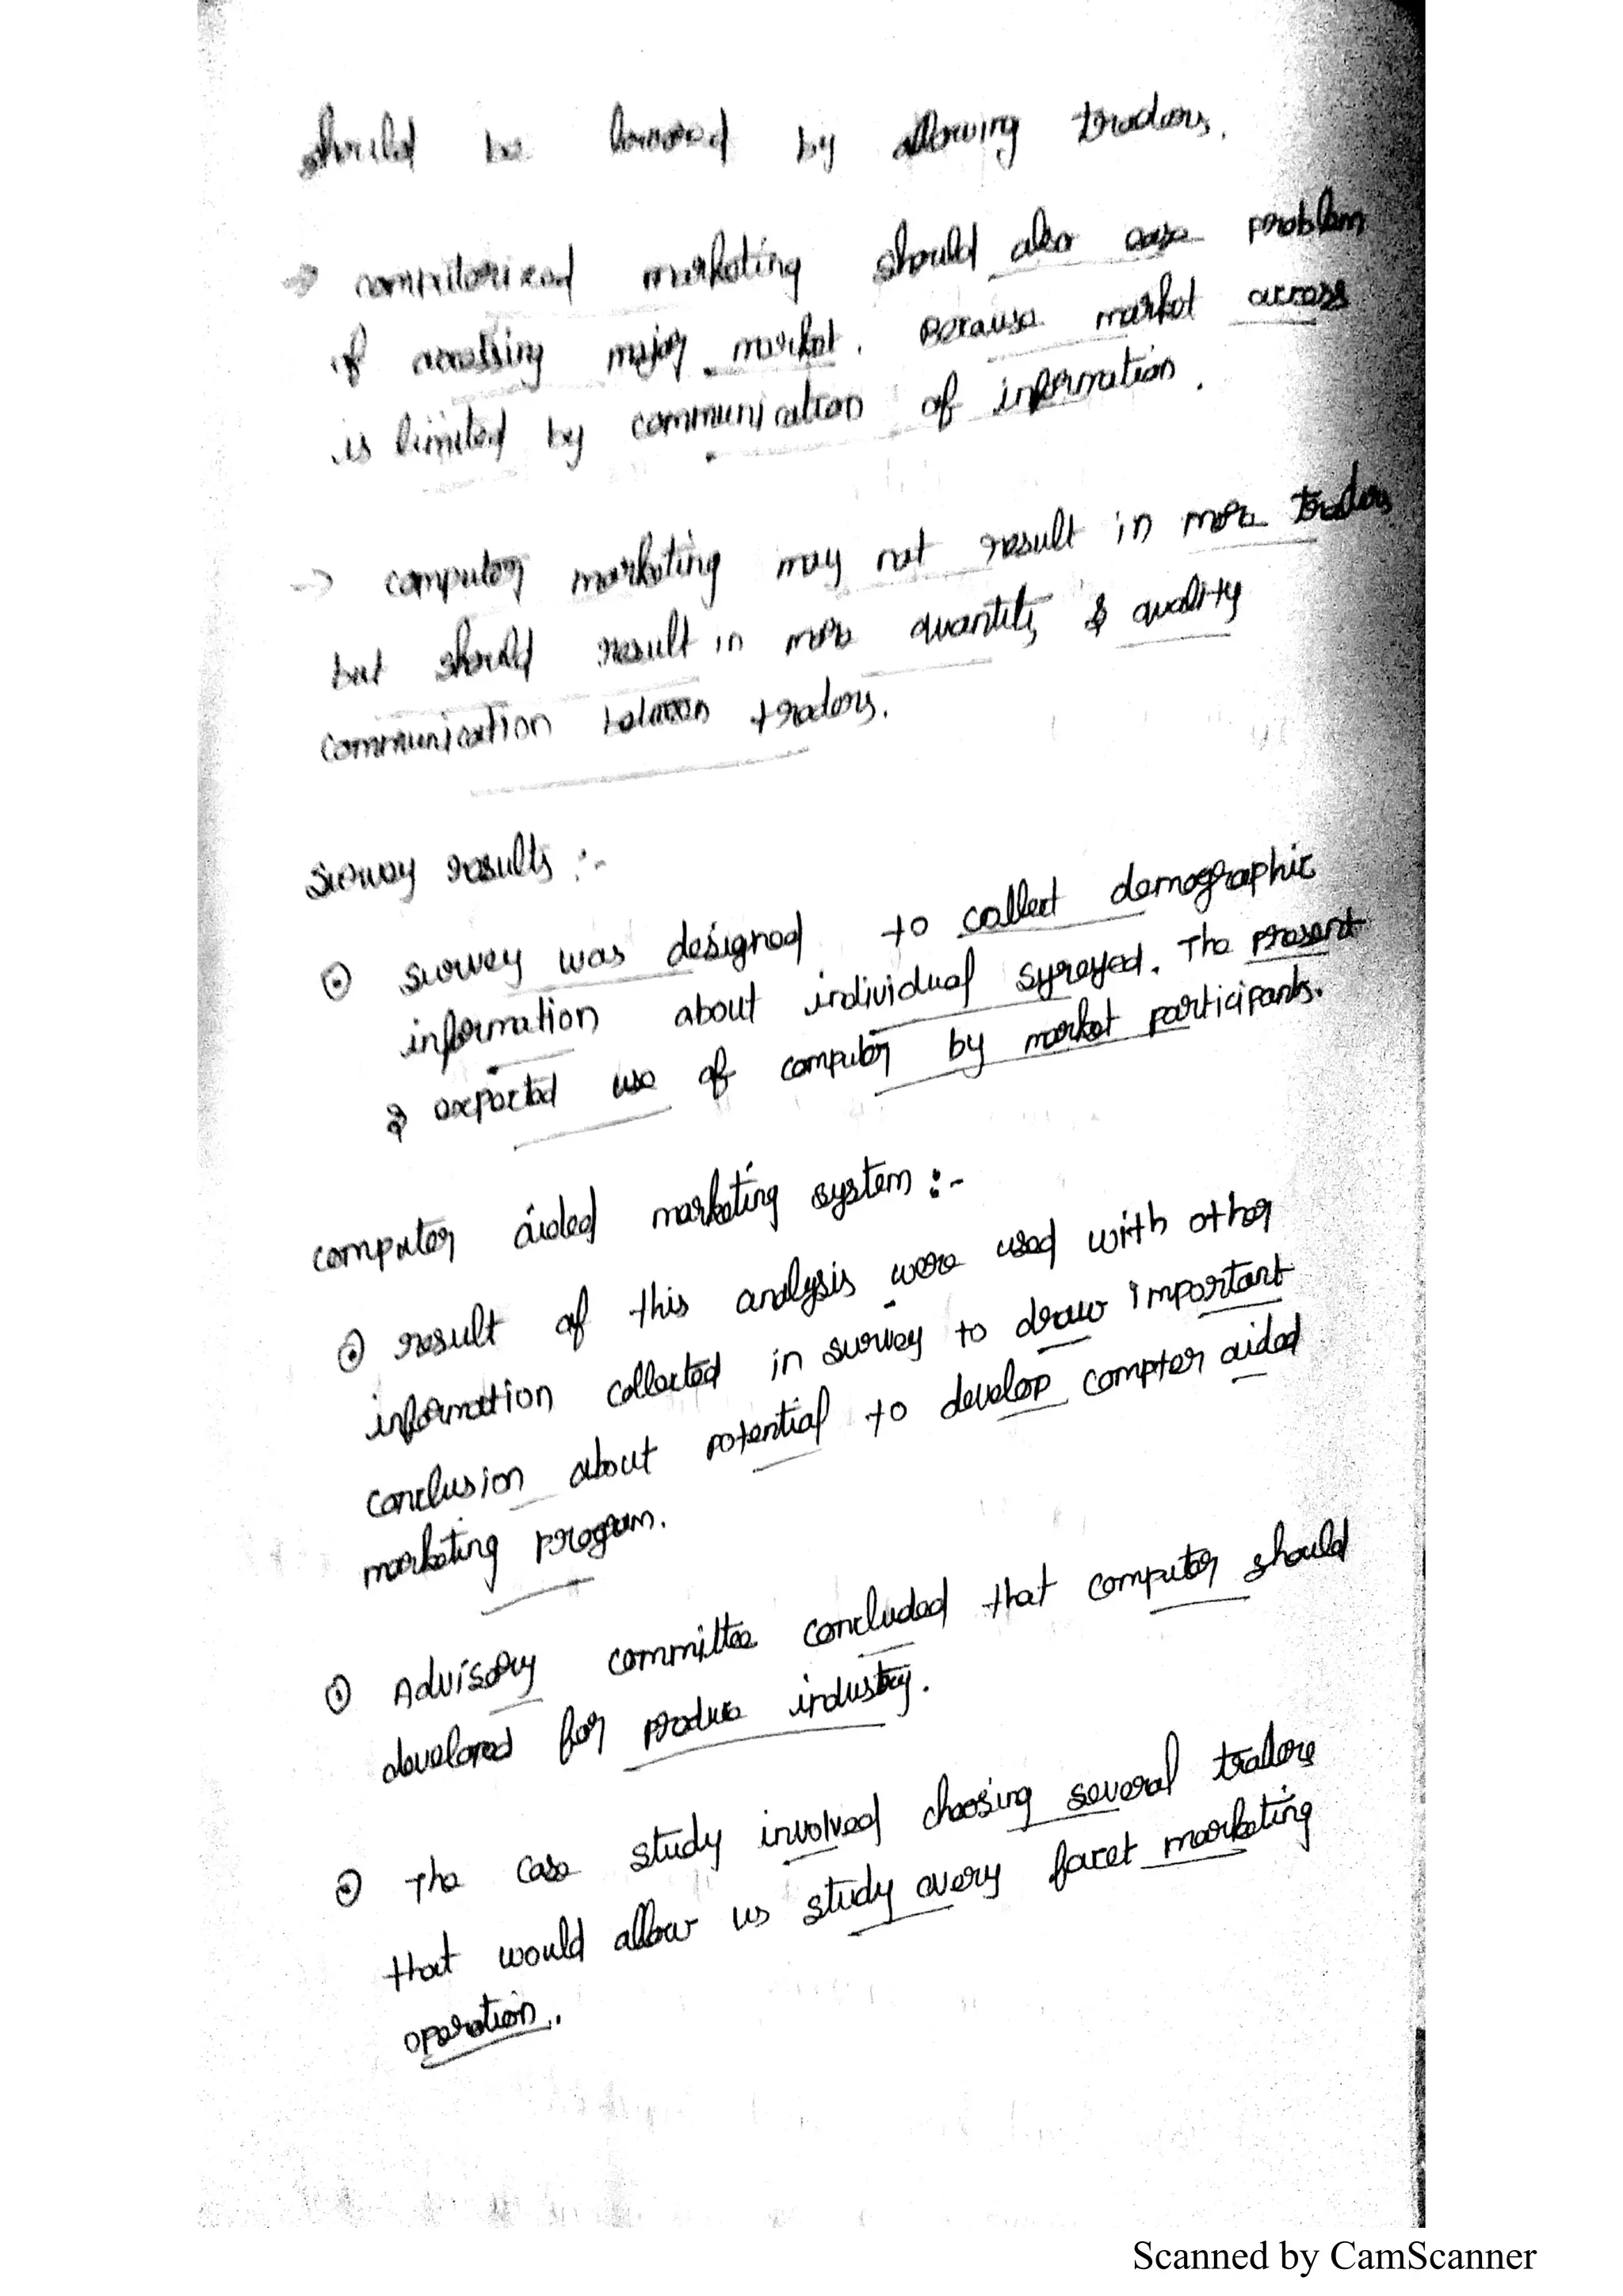 should be lowered by allowing traders.
→ computerized marketing should also ease problem
of accessing major market. Because market access
is limited by communication of information.
→ computer marketing may not result in more traders
but should result in more quantity & quality
communication between traders.
survey results :-
⊙ survey was designed to collect demographic
information about individual syreyed. The present
& expected use of computer by market participants.
computer aided marketing system :-
⊙ result of this analysis were used with other
information collected in survey to draw important
conclusion about potential to develop compter aided
marketing program.
⊙ Advisory committee concluded that computer should
developed for produce industry.
⊙ The case study involved choosing several traders
that would allow us study every facet marketing
operation.
Scanned by CamScanner